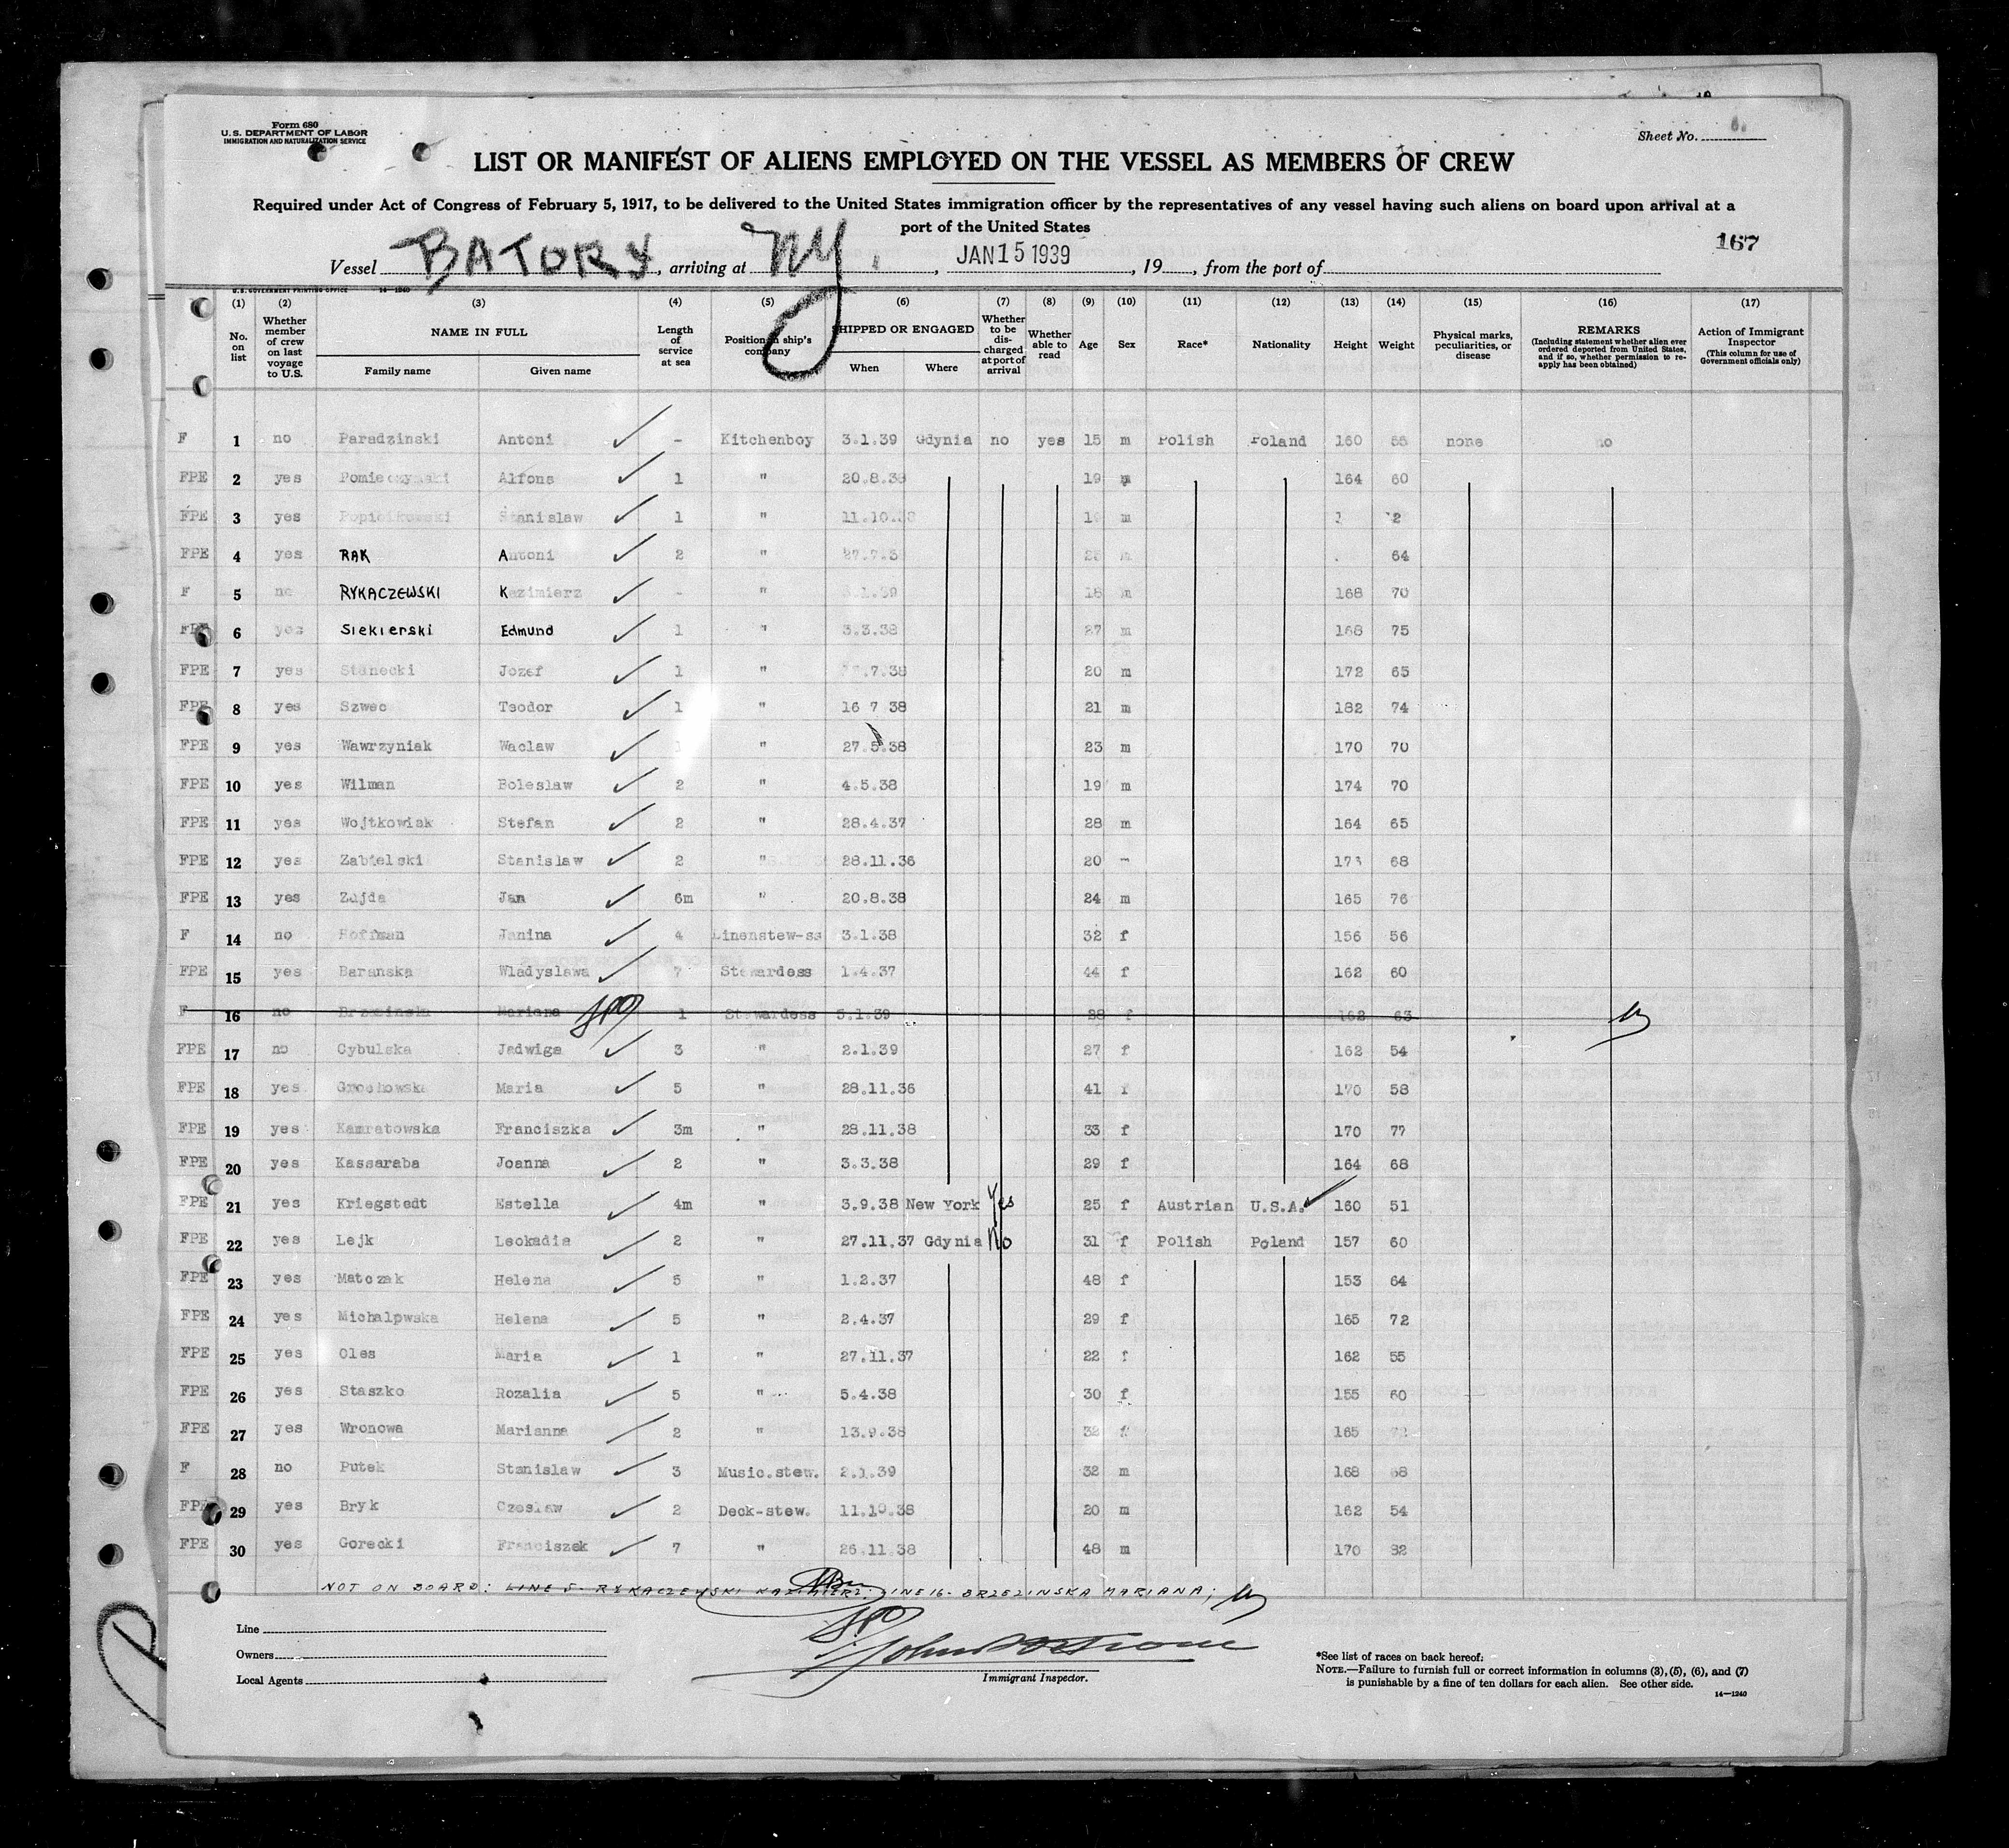 Form 680
U.S. DEPARTMENT OF LABOR
IMMIGRATION AND NATURALIZATION SERVICE
Sheet No. 6.
LIST OR MANIFEST OF ALIENS EMPLOYED ON THE VESSEL AS MEMBERS OF CREW
Required under Act of Congress of February 5, 1917, to be delivered to the United States immigration officer by the representatives of any vessel having such aliens on board upon arrival at a
port of the United States
167
Vessel BATORY, arriving at NY., JAN 15 1939, 19 , from the port of
U.S. GOVERNMENT PRINTING OFFICE 14-1240
(1) (2) (3) (4) (5) (6) (7) (8) (9) (10) (11) (12) (13) (14) (15) (16) (17)
No. on list Whether member of crew on last voyage to U.S. NAME IN FULL Family name Given name Length of service at sea Position in ship's company SHIPPED OR ENGAGED When Where Whether to be discharged at port of arrival Whether able to read Age Sex Race* Nationality Height Weight Physical marks, peculiarities, or disease REMARKS (Including statement whether alien ever ordered deported from United States, and if so, whether permission to reapply has been obtained) Action of Immigrant Inspector (This column for use of Government officials only)
F 1 no Paradzinski Antoni - Kitchenboy 3.1.39 Gdynia no yes 15 m Polish Poland 160 55 none no
FPE 2 yes Pomieczynski Alfons 1 " 20.8.38 19 m 164 60
FPE 3 yes Stanislaw 1 " 11.10.38 m
FPE 4 yes RAK Antoni 2 " 64
F 5 no RYKACZEWSKI Kazimierz - " 3.1.39 18 m 168 70
FPE 6 yes Siekierski Edmund 1 " 3.3.38 27 m 168 75
FPE 7 yes Stanecki Jozef 1 " .7.38 20 m 172 65
FPE 8 yes Szwec Teodor 1 " 16 7 38 21 m 182 74
FPE 9 yes Wawrzyniak Waclaw 1 " 27.5.38 23 m 170 70
FPE 10 yes Wilman Boleslaw 2 " 4.5.38 19 m 174 70
FPE 11 yes Wojtkowiak Stefan 2 " 28.4.37 28 m 164 65
FPE 12 yes Zabielski Stanislaw 2 " 28.11.36 20 173 68
FPE 13 yes Zajda Jan 6m " 20.8.38 24 m 165 76
F 14 no Hoffman Janina 4 Linenstew-ss 3.1.38 32 f 156 56
FPE 15 yes Baranska Wladyslawa 7 Stewardess 1.4.37 44 f 162 60
F 16 no Brzezinska Mariana 1 Stewardess 3.1.39 28 f 162 63
FPE 17 no Cybulska Jadwiga 3 " 2.1.39 27 f 162 54
FPE 18 yes Grochowska Maria 5 " 28.11.36 41 f 170 58
FPE 19 yes Kamratowska Franciszka 3m " 28.11.38 33 f 170 77
FPE 20 yes Kassaraba Joanna 2 " 3.3.38 29 f 164 68
FPE 21 yes Kriegstedt Estella 4m " 3.9.38 New York Yes 25 f Austrian U.S.A. 160 51
FPE 22 yes Lejk Leokadia 2 " 27.11.37 Gdynia No 31 f Polish Poland 157 60
FPE 23 yes Matczak Helena 5 " 1.2.37 48 f 153 64
FPE 24 yes Michalpwska Helena 5 " 2.4.37 29 f 165 72
FPE 25 yes Oles Maria 1 " 27.11.37 22 f 162 55
FPE 26 yes Staszko Rozalia 5 " 5.4.38 30 f 155 60
FPE 27 yes Wronowa Marianna 2 " 13.9.38 32 f 165 72
F 28 no Putek Stanislaw 3 Music.stew. 2.1.39 32 m 168 68
FPE 29 yes Bryk Czeslaw 2 Deck-stew. 11.10.38 20 m 162 54
FPE 30 yes Gorecki Franciszek 7 " 26.11.38 48 m 170 82
NOT ON BOARD: LINE 5- RYKACZEWSKI KAZIMIERZ; LINE 16- BRZEZINSKA MARIANA;
Line
Owners
Local Agents
Immigrant Inspector.
*See list of races on back hereof.
NOTE.—Failure to furnish full or correct information in columns (3), (5), (6), and (7)
is punishable by a fine of ten dollars for each alien. See other side.
14-1240